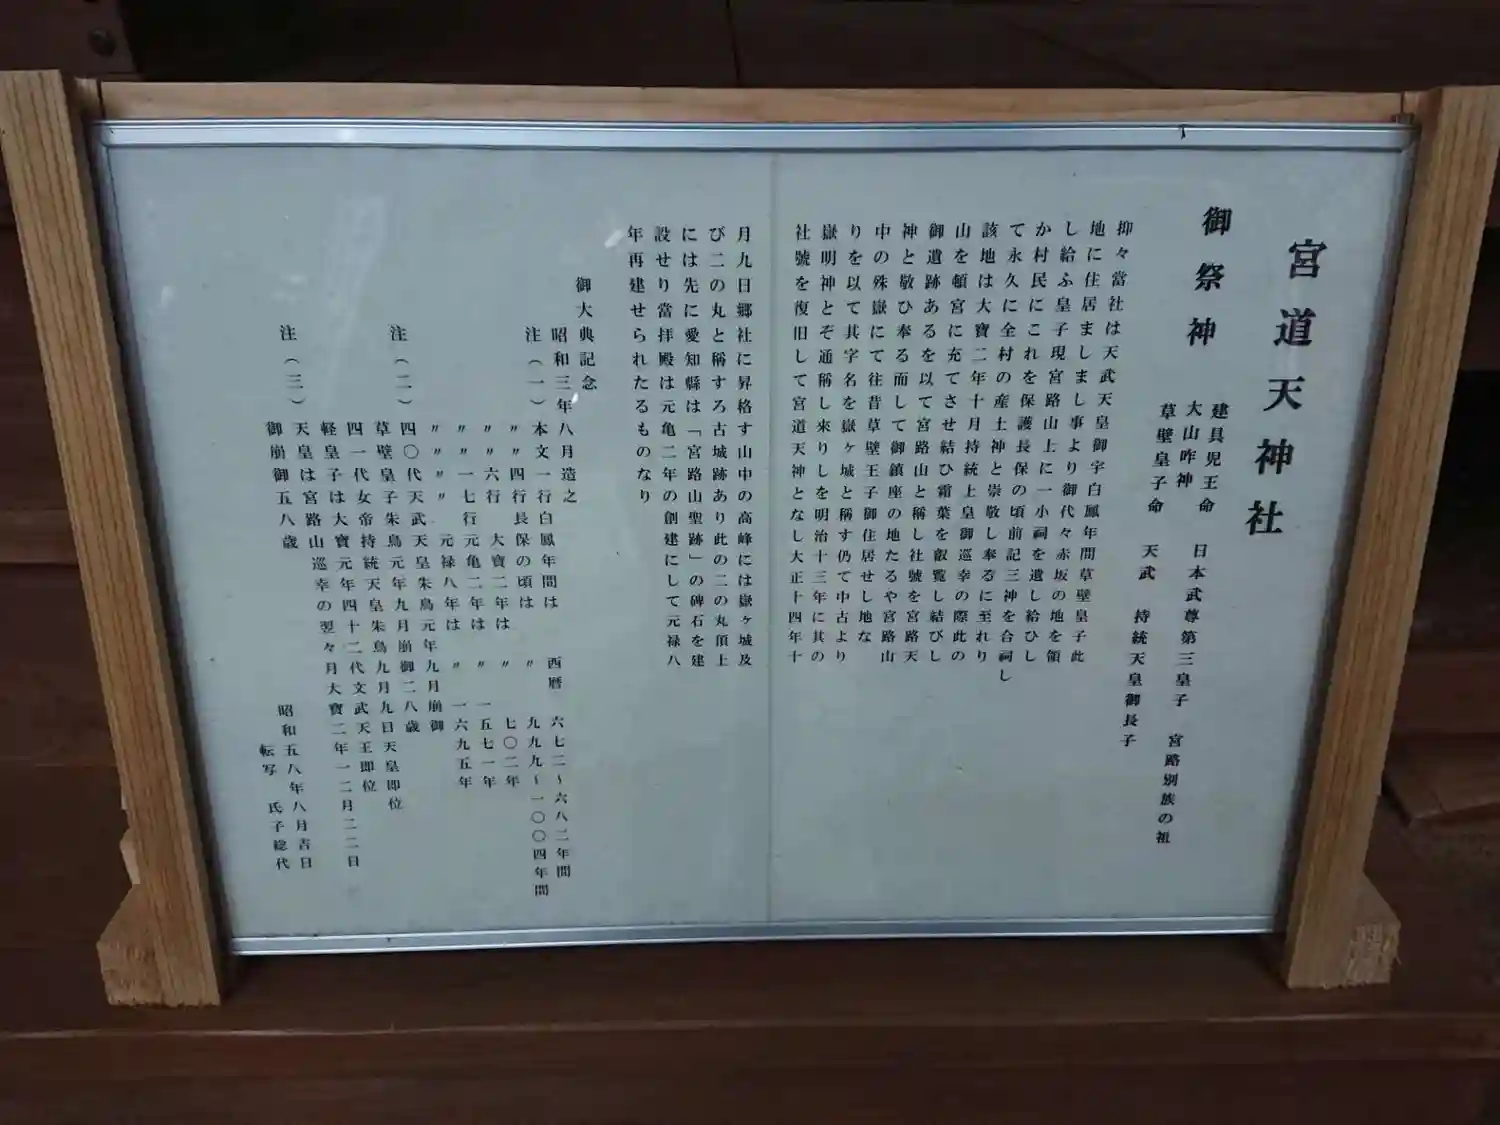 宮道天神社
御祭神
建具児王命 日本武尊第三皇子 宮路別族の祖
大山咋神
草壁皇子命 天武 持統天皇御長子
抑々當社は天武天皇御宇白鳳年間草壁皇子此
地に住居ましまし事より御代々赤坂の地を領
し給ふ皇子現宮路山上に一小祠を遺し給ひし
か村民にこれを保護長保の頃前記三神を合祠し
て永久に全村の産土神と崇敬し奉るに至れり
該地は大寶二年十月持統上皇御巡幸の際此の
山を頓宮に充てさせ結ひ霜葉を叡覧し結びし
御遺跡あるを以て宮路山と稱し社號を宮路天
神と敬ひ奉る而して御鎮座の地たるや宮路山
中の殊嶽にて往昔草壁王子御住居せし地な
りを以て其字名を嶽ヶ城と稱す仍て中古より
嶽明神とぞ通稱し來りしを明治十三年に其の
社號を復旧して宮道天神となし大正十四年十
月九日郷社に昇格す山中の高峰には嶽ヶ城及
び二の丸と稱すろ古城跡あり此の二の丸頂上
には先に愛知縣は「宮路山聖跡」の碑石を建
設せり當拝殿は元亀二年の創建にして元禄八
年再建せられたるものなり
御大典記念
昭和三年八月造之
注(一)本文一行白鳳年間は 西暦 六七二~六八二年間
〃〃四行長保の頃は 〃 九九九~一〇〇四年間
〃〃六行 大寶二年は 〃 七〇二年
〃〃一七行元亀二年は 〃 一五七一年
〃〃〃 元禄八年は 〃 一六九五年
注(二)四〇代天武天皇朱鳥元年九月崩御
草壁皇子朱鳥元年九月崩御二八歳
四一代女帝持統天皇朱鳥九月九日天皇即位
軽皇子は大寶元年四十二代文武天王即位
注(三)天皇は宮路山巡幸の翌々月大寶二年一二月二二日
御崩御五八歳
昭和五八年八月吉日
転写 氏子総代